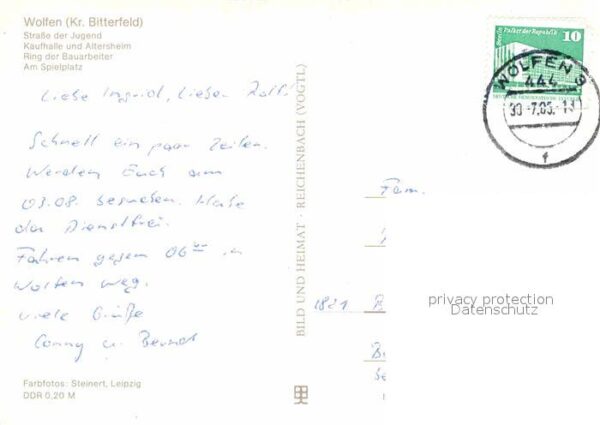 Wolfen (Kr. Bitterfeld)
Straße der Jugend
Kaufhalle und Altersheim
Ring der Bauarbeiter
Am Spielplatz
Liebe Ingrid, lieber Rolf!
Schnell ein paar Zeilen.
Werden Euch am
03.08. besuchen. Habe
da Dienstfrei.
Fahren gegen 06 in
Wolfen weg.
viele Grüße
Conny u. Bernd
Farbfotos: Steinert, Leipzig
DDR 0,20 M
BILD UND HEIMAT · REICHENBACH (VOGTL)
Berlin Palast der Republik
10
WOLFEN 3
444
30.-7.85.-13
f
Fam.
1821
privacy protection
Datenschutz